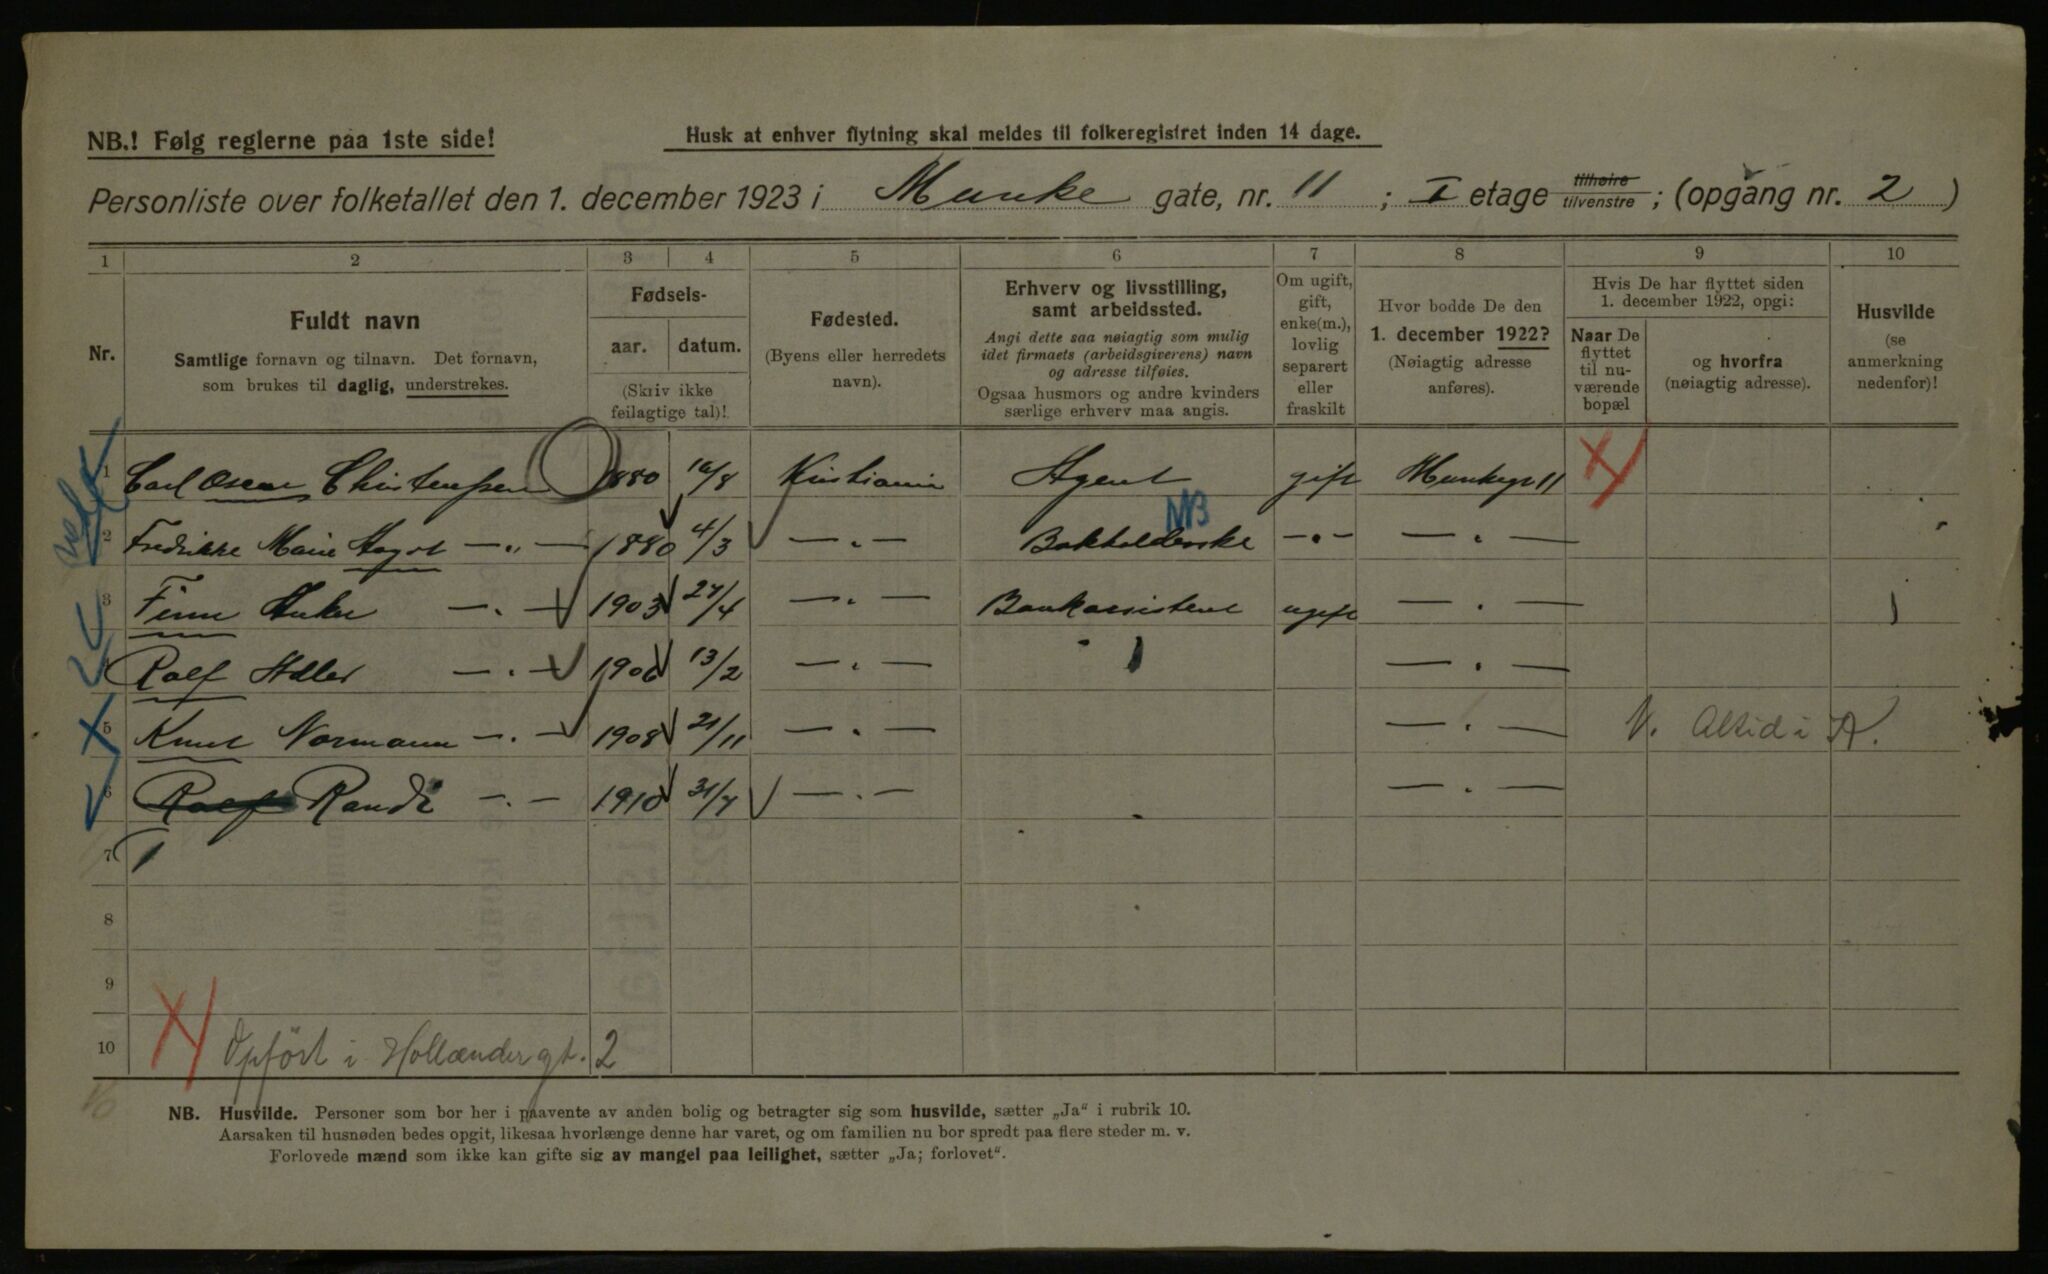 NB.! Følg reglerne paa 1ste side!
Husk at enhver flytning skal meldes til folkeregistret inden 14 dage.
Personliste over folketallet den 1. december 1923 i Munke gate, nr. 11 ; I etage tilhøire tilvenstre ; (opgang nr. 2 )
1 2 3 4 5 6 7 8 9 10
Nr.
Fuldt navn
Samtlige fornavn og tilnavn. Det fornavn,
som brukes til daglig, understrekes.
Fødsels-
aar. datum.
(Skriv ikke
feilagtige tal)!
Fødested.
(Byens eller herredets
navn).
Erhverv og livsstilling,
samt arbeidssted.
Angi dette saa nøiagtig som mulig
idet firmaets (arbeidsgiverens) navn
og adresse tilføies.
Ogsaa husmors og andre kvinders
særlige erhverv maa angis.
Om ugift,
gift,
enke(m.),
lovlig
separert
eller
fraskilt
Hvor bodde De den
1. december 1922?
(Nøiagtig adresse
anføres).
Hvis De har flyttet siden
1. december 1922, opgi:
Naar De
flyttet
til nu-
værende
bopæl
og hvorfra
(nøiagtig adresse).
Husvilde
(se
anmerkning
nedenfor)!
1 Carl Oscar Christensen 1880 16/8 Kristiania Agent gift Munkegt 11
NB
2 Fredrikke Marie — „ — 1880 4/3 — „ — Bokholderske — „ — — „ —
3 Finn — „ — 1903 27/4 — „ — Bankassistent ugift — „ —
Rolf Adler — „ — 1906 13/2 — „ — — „ —
5 Knut Normann — „ — 1908 21/11 — „ — — „ — V. Altid i A.
6 Rolf Randi — „ — 1910 31/7 — „ — — „ —
7
8
9
10 Opført i Hollændergt. 2
NB. Husvilde. Personer som bor her i paavente av anden bolig og betragter sig som husvilde, sætter „Ja“ i rubrik 10.
Aarsaken til husnøden bedes opgit, likesaa hvorlænge denne har varet, og om familien nu bor spredt paa flere steder m. v.
Forlovede mænd som ikke kan gifte sig av mangel paa leilighet, sætter „Ja; forlovet“.